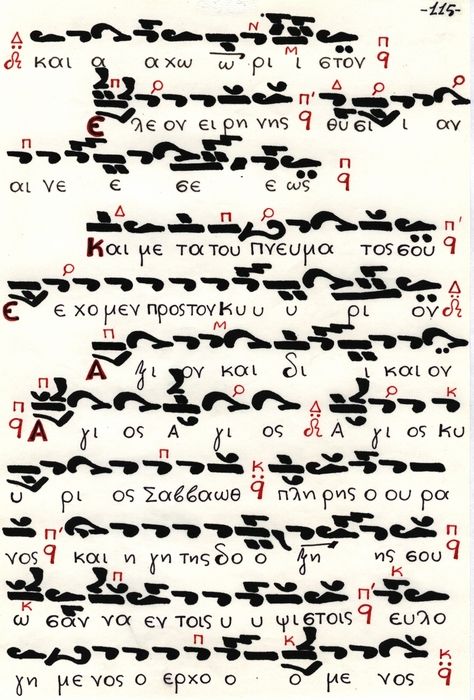 -115-
και α αχω ω ρι ι στον
Ε λε ον ει ρη νης θυ σι ι αν
αι νε ε σε ε ως
Και με τα του πνευμα τος σου
Ε ε χο μεν προς τον Κυ υ υ ρι ον
Α ξι ον και δι ι και ον
Α γι ος Α γι ος Α γι ος Κυ
υ ρι ος Σαββαωθ πλη ρης ο ου ρα
νος και η γη της δο ο ξη ης σου
ω σαν να εν τοις υ υ ψι στοις ευλο
γη με νος ο ερχο ο ο με νος